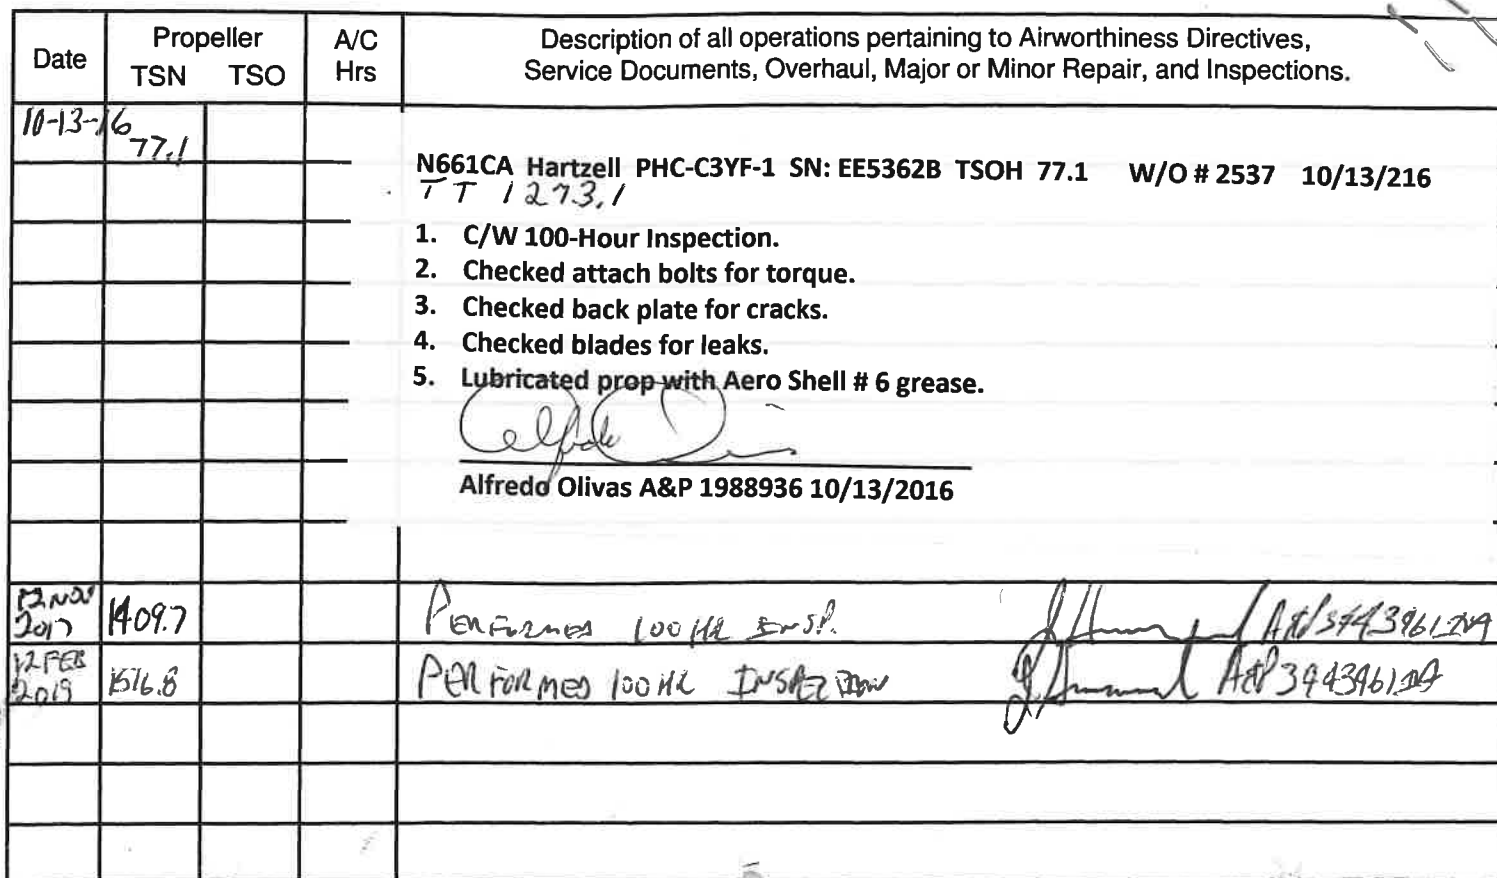 Date Propeller A/C Description of all operations pertaining to Airworthiness Directives,
TSN TSO Hrs Service Documents, Overhaul, Major or Minor Repair, and Inspections.
10-13-16
77.1
N661CA Hartzell PHC-C3YF-1 SN: EE5362B TSOH 77.1 W/O # 2537 10/13/216
TT 1273.1
1. C/W 100-Hour Inspection.
2. Checked attach bolts for torque.
3. Checked back plate for cracks.
4. Checked blades for leaks.
5. Lubricated prop with Aero Shell # 6 grease.
Alfredo Olivas A&P 1988936 10/13/2016
12 NOV
2017 1409.7 PERFORMED 100 HR INSP. A&P
12 FEB
2019 1516.8 PERFORMED 100 HR INSPECTION A&P 3943961 IA